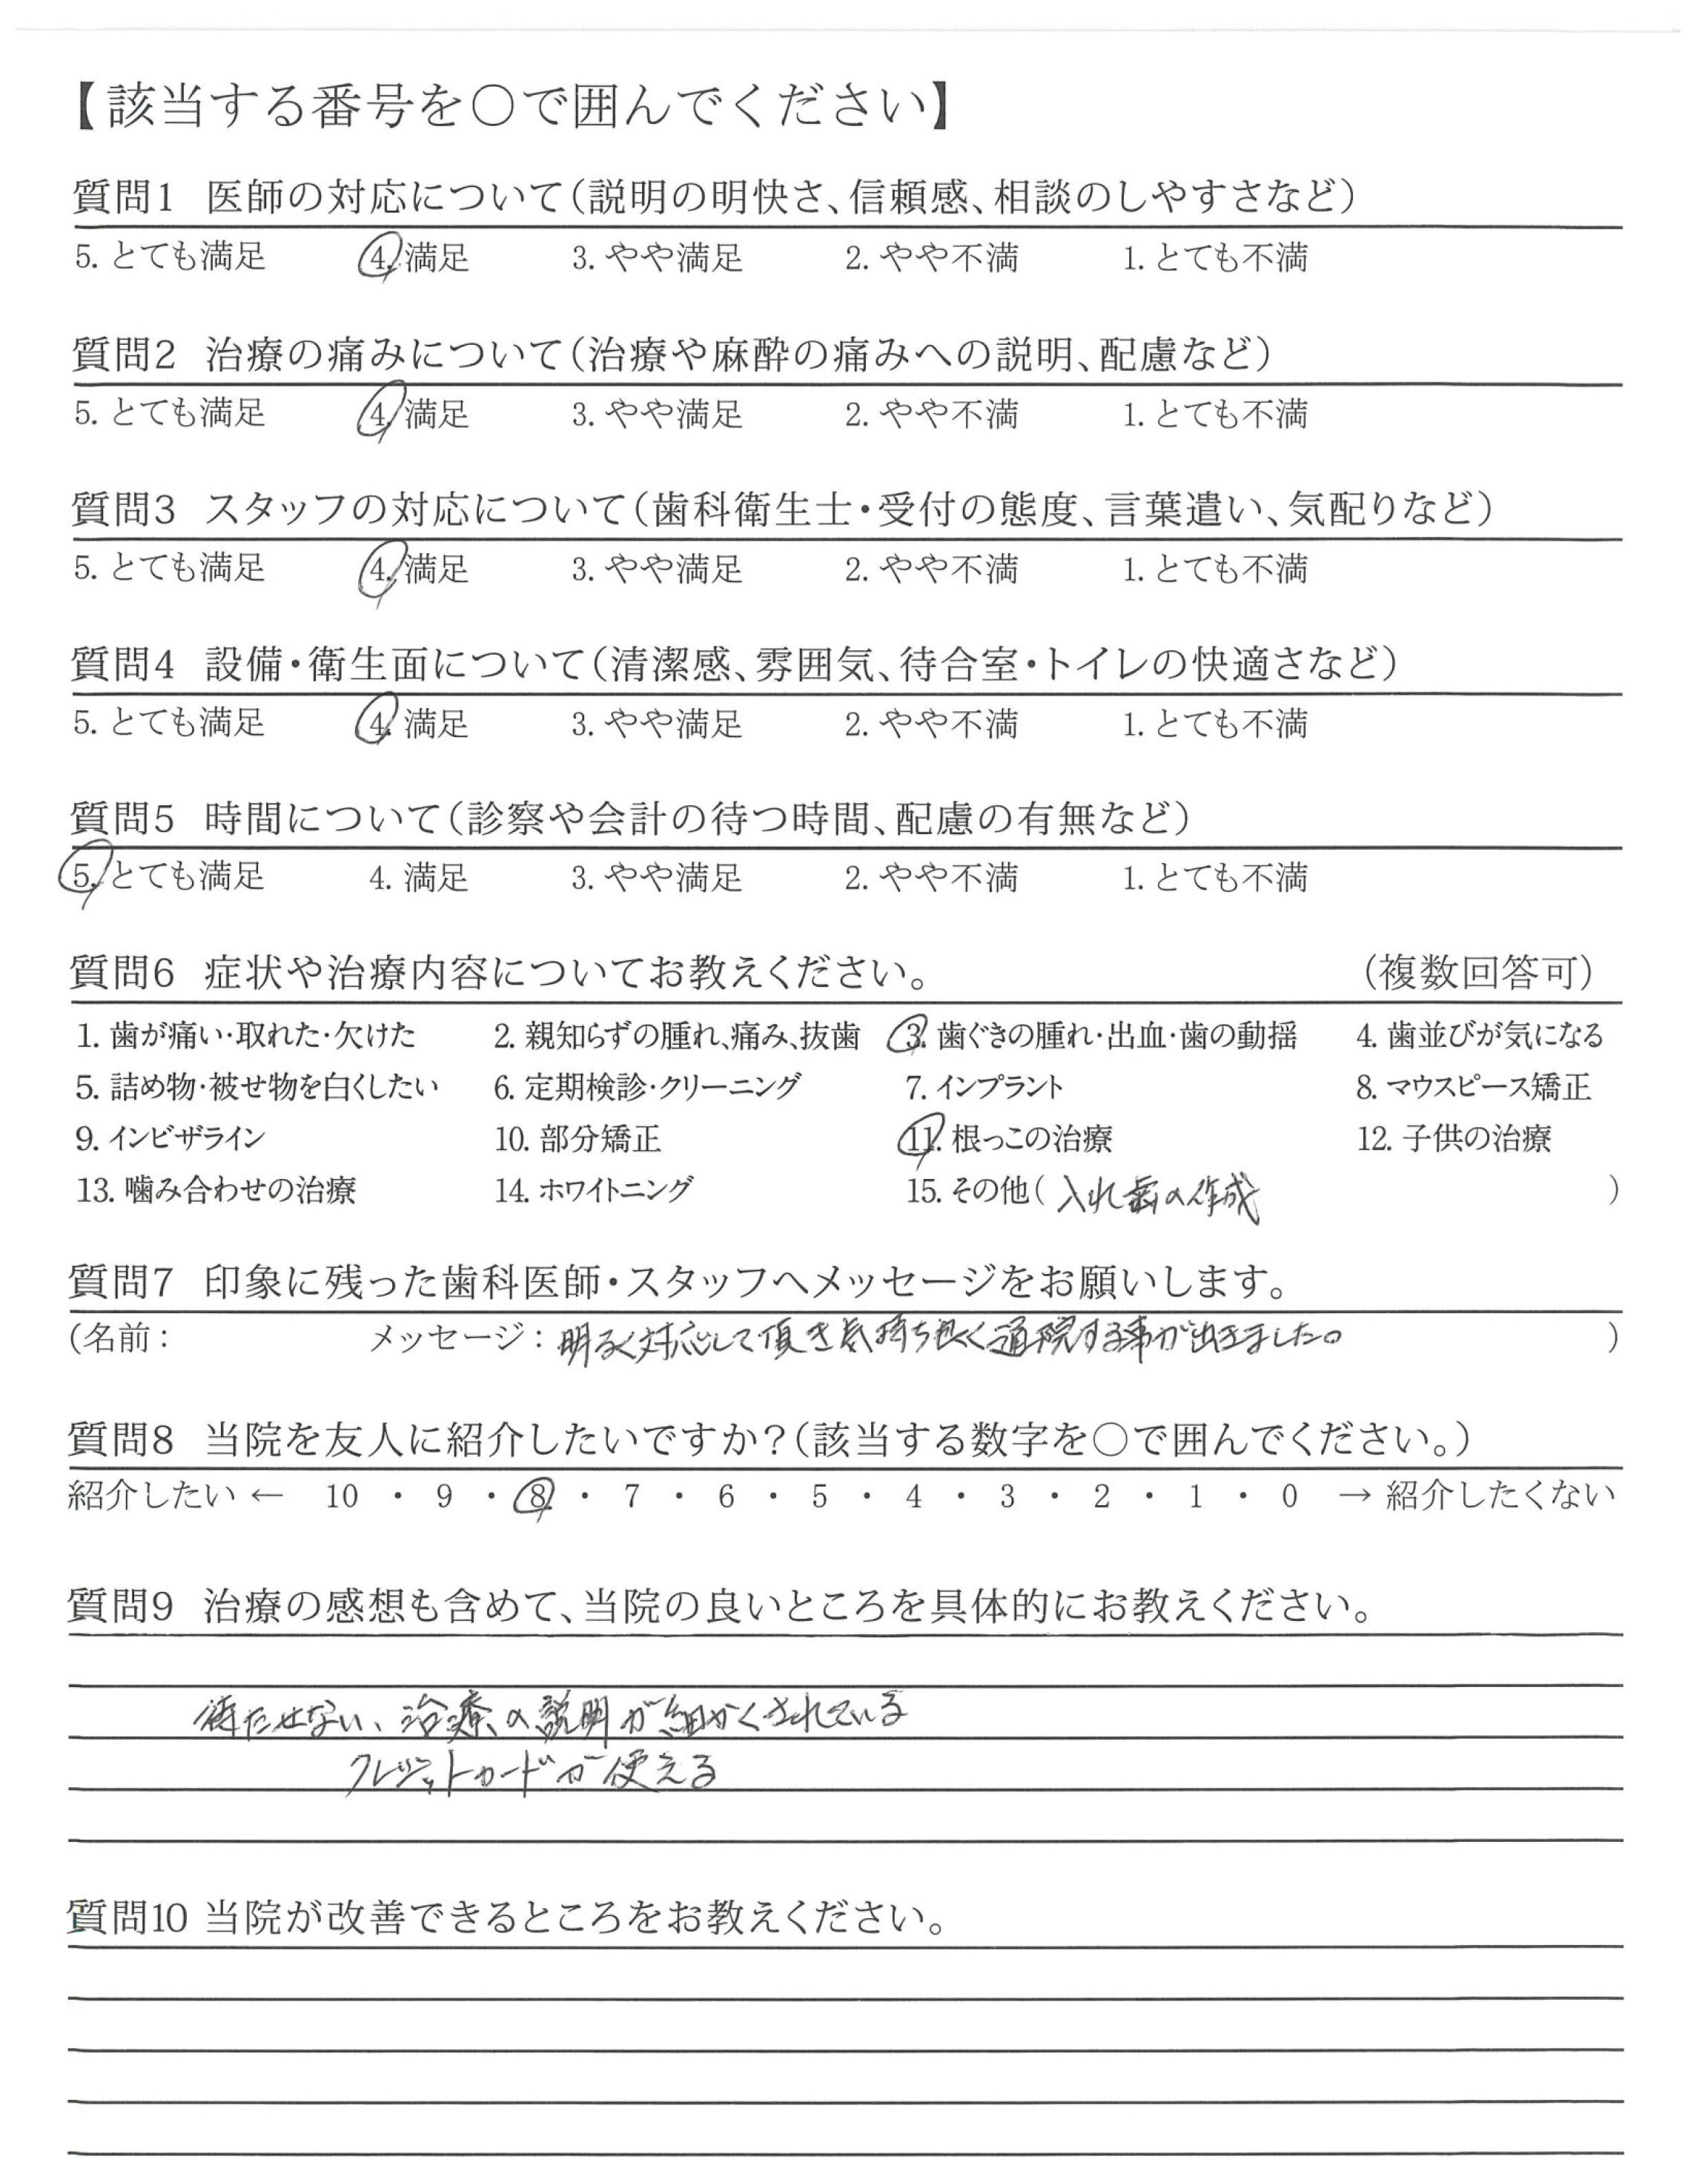 【該当する番号を○で囲んでください】
質問1 医師の対応について(説明の明快さ、信頼感、相談のしやすさなど)
5. とても満足 4. 満足 3. やや満足 2. やや不満 1. とても不満
質問2 治療の痛みについて(治療や麻酔の痛みへの説明、配慮など)
5. とても満足 4. 満足 3. やや満足 2. やや不満 1. とても不満
質問3 スタッフの対応について(歯科衛生士・受付の態度、言葉遣い、気配りなど)
5. とても満足 4. 満足 3. やや満足 2. やや不満 1. とても不満
質問4 設備・衛生面について(清潔感、雰囲気、待合室・トイレの快適さなど)
5. とても満足 4. 満足 3. やや満足 2. やや不満 1. とても不満
質問5 時間について(診察や会計の待つ時間、配慮の有無など)
5. とても満足 4. 満足 3. やや満足 2. やや不満 1. とても不満
質問6 症状や治療内容についてお教えください。 (複数回答可)
1. 歯が痛い・取れた・欠けた 2. 親知らずの腫れ、痛み、抜歯 3. 歯ぐきの腫れ・出血・歯の動揺 4. 歯並びが気になる
5. 詰め物・被せ物を白くしたい 6. 定期検診・クリーニング 7. インプラント 8. マウスピース矯正
9. インビザライン 10. 部分矯正 11. 根っこの治療 12. 子供の治療
13. 噛み合わせの治療 14. ホワイトニング 15. その他( 入れ歯の作成 )
質問7 印象に残った歯科医師・スタッフへメッセージをお願いします。
(名前: メッセージ: 明るく対応して頂き気持ち良く通院する事が出来ました。 )
質問8 当院を友人に紹介したいですか?(該当する数字を○で囲んでください。)
紹介したい ← 10 ・ 9 ・ 8 ・ 7 ・ 6 ・ 5 ・ 4 ・ 3 ・ 2 ・ 1 ・ 0 → 紹介したくない
質問9 治療の感想も含めて、当院の良いところを具体的にお教えください。
待たせない、治療の説明が細かくされている
クレジットカードが使える
質問10 当院が改善できるところをお教えください。